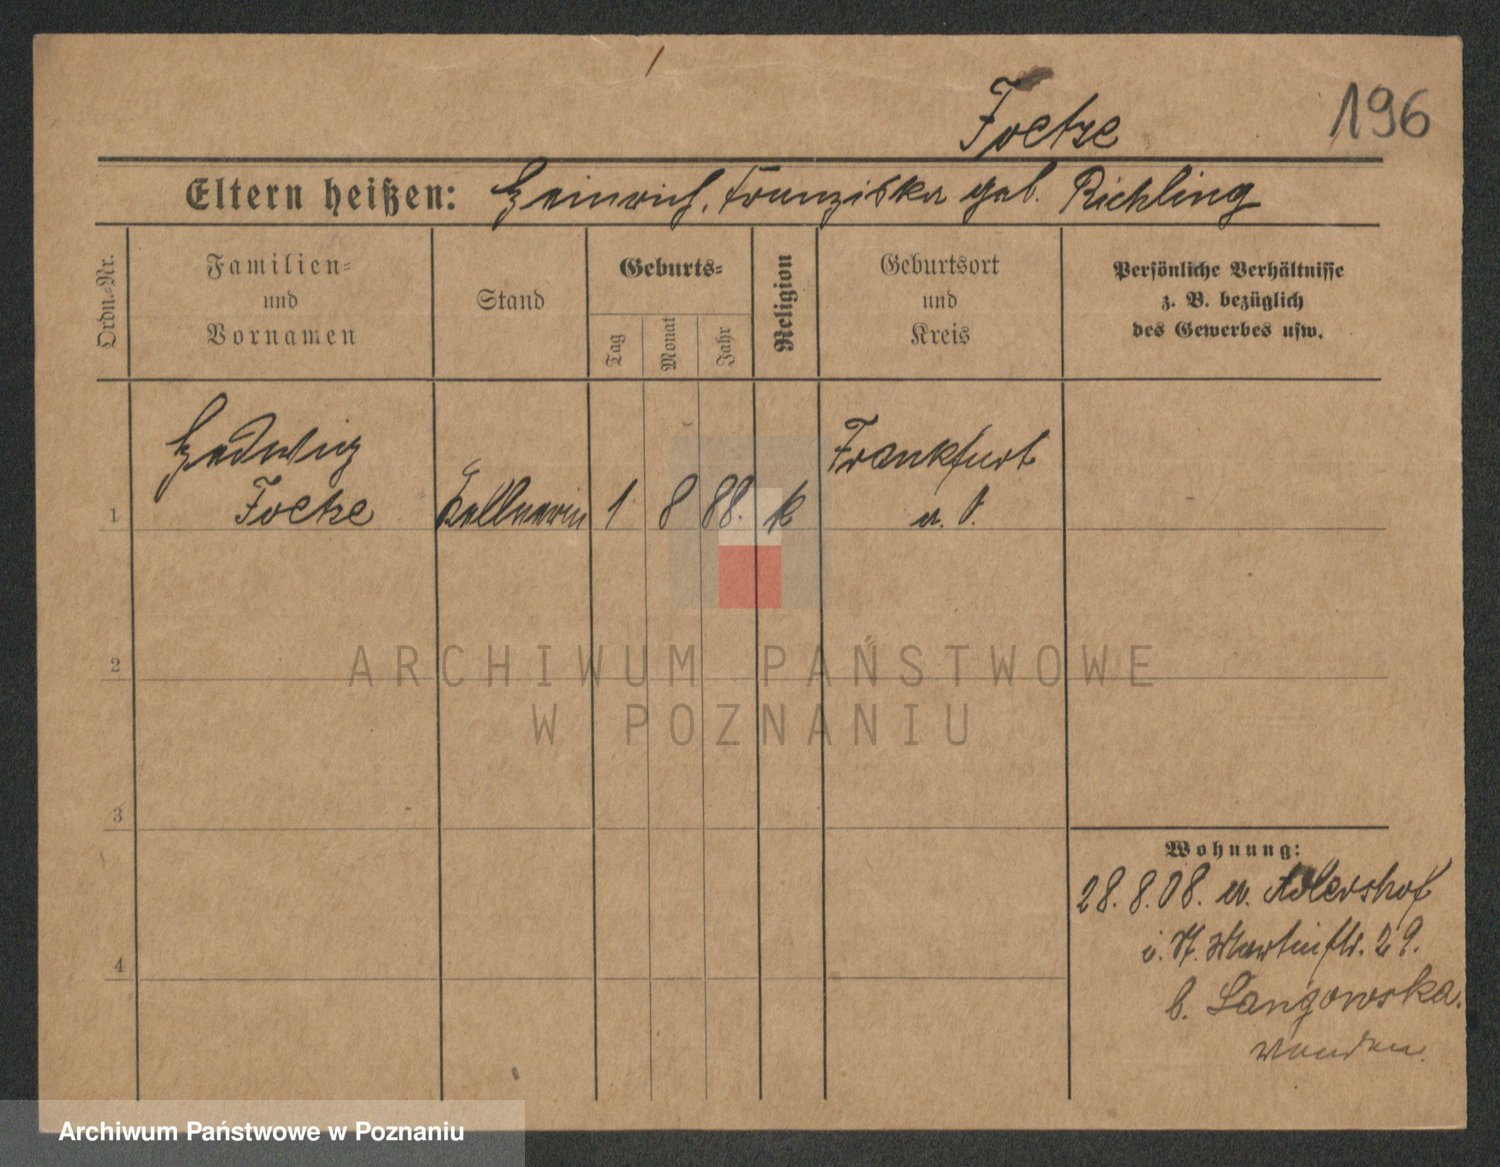 196
Foetze
Eltern heißen: Heinrich, Franziska geb. Richling
Ordn.-Nr.
Familien=
und
Vornamen
Stand
Geburts=
Tag
Monat
Jahr
Religion
Geburtsort
und
Kreis
Persönliche Verhältnisse
z. B. bezüglich
des Gewerbes usw.
Hedwig
Frankfurt
1 Foetze Kellnerin 1 8 88. k a. O.
2
3
4
Wohnung:
28. 8. 08. a. Adlershof
i. St. Martinstr. 29.
b. Langowska.
ARCHIWUM PAŃSTWOWE
W POZNANIU
Archiwum Państwowe w Poznaniu